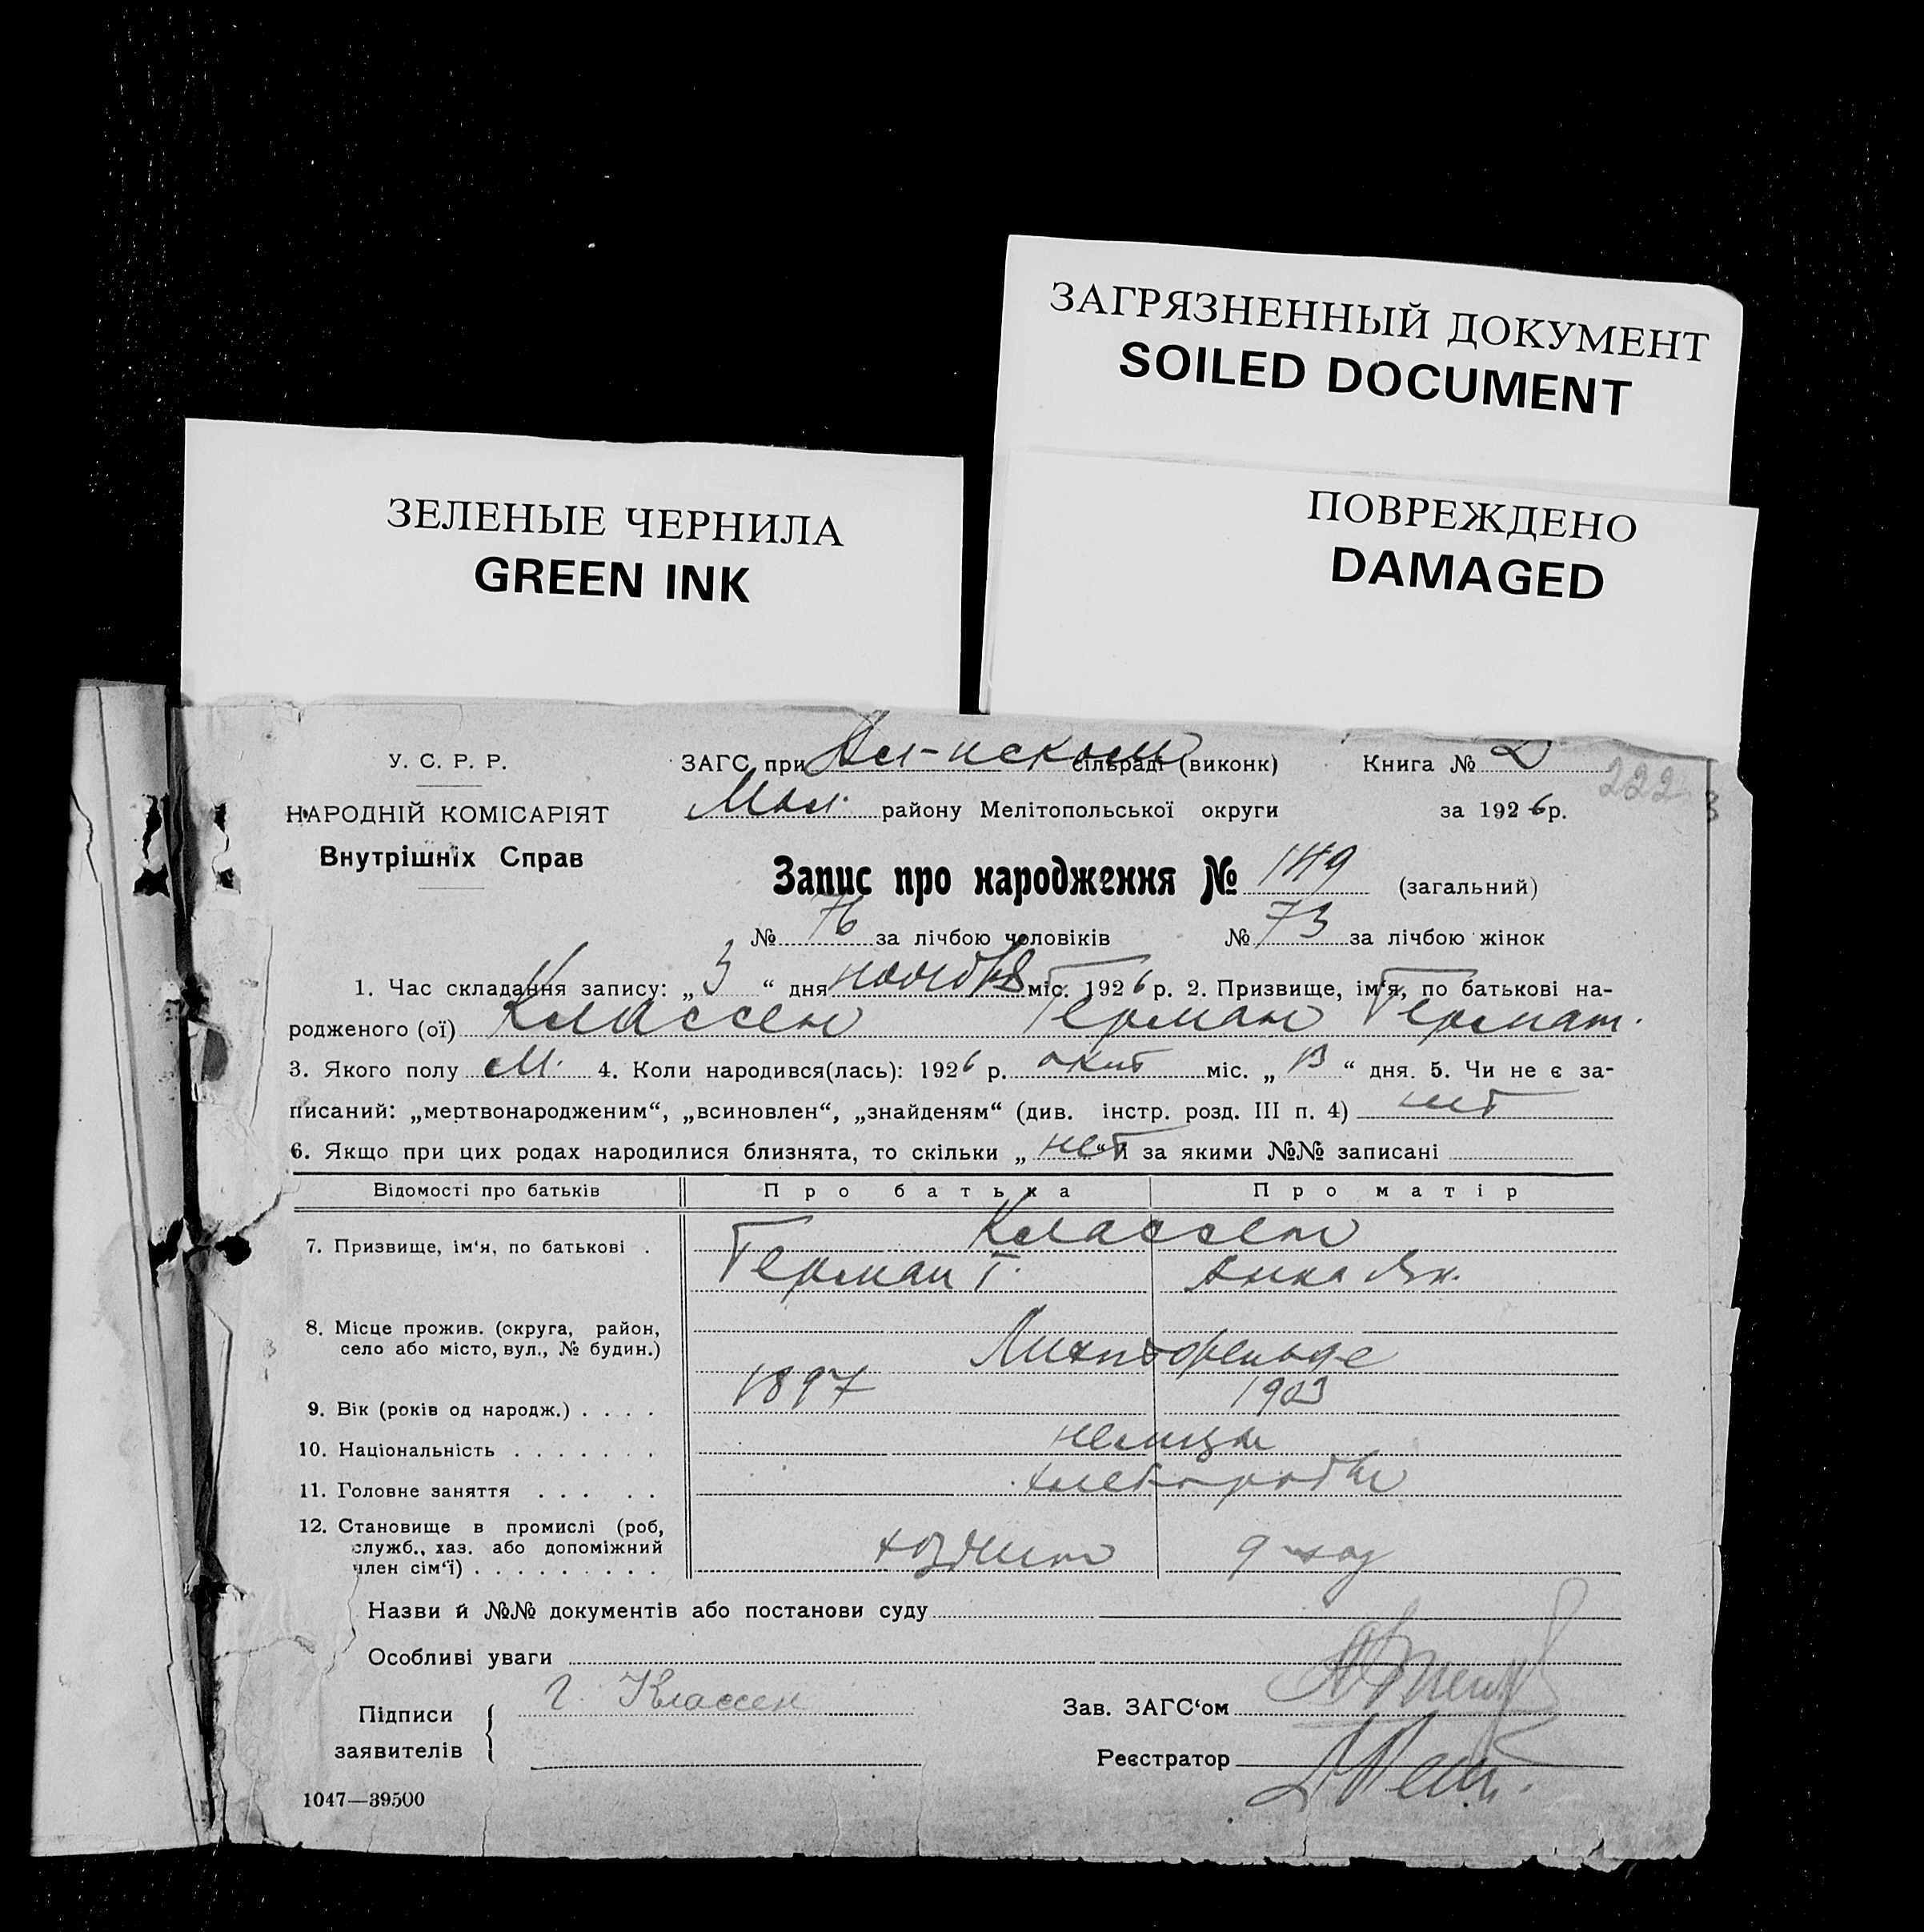 ЗАГРЯЗНЕННЫЙ ДОКУМЕНТ
SOILED DOCUMENT
ЗЕЛЕНЫЕ ЧЕРНИЛА
GREEN INK
ПОВРЕЖДЕНО
DAMAGED
У. С. Р. Р.
НАРОДНІЙ КОМІСАРІЯТ
Внутрішніх Справ
ЗАГС при сільраді (виконк)
Мол. району Мелітопольської округи
Книга № 2
222
за 1926 р.
Запис про народження № 149 (загальний)
№ 76 за лічбою чоловіків № 73 за лічбою жінок
1. Час складання запису: „ 3 “ дня ноября міс. 1926 р. 2. Призвище, ім‘я, по батькові на-
родженого (ої) Классен Герман Герман.
3. Якого полу М. 4. Коли народився(лась): 1926 р. окт міс. „ 13 “ дня. 5. Чи не є за-
писаний: „мертвонародженим“, „всиновлен“, „знайденям“ (див. інстр. розд. III п. 4) нет
6. Якщо при цих родах народилися близнята, то скільки „ нет “ й за якими №№ записані
Відомості про батьків Про батька Про матір
7. Призвище, ім‘я, по батькові . Классен
Герман Г. Анна Як.
8. Місце прожив. (округа, район,
село або місто, вул., № будин.) Лихтфельде
9. Вік (років од народж.) . . . . 1897 1903
10. Національність . . . . . . . немцы
11. Головне заняття . . . . . хлебороб
12. Становище в промислі (роб,
служб., хаз. або допоміжний
член сім‘ї) . . . . . . . . . хозяин
Назви й №№ документів або постанови суду
Особливі уваги
Підписи
заявителів
Г. Классен
Зав. ЗАГС‘ом
Реєстратор
1047—39500